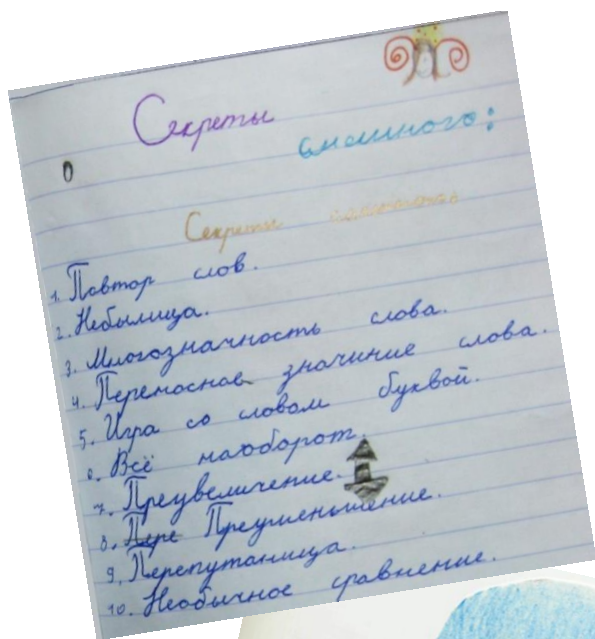 Секреты
смешного:
Секреты
1. Повтор слов.
2. Небылица.
3. Многозначность слова.
4. Переносное значиние слова.
5. Игра со словом буквой.
6. Всё наоборот.
7. Преувеличение.
8. Пере Преуменьшение.
9. Перепутаница.
10. Необычное сравнение.